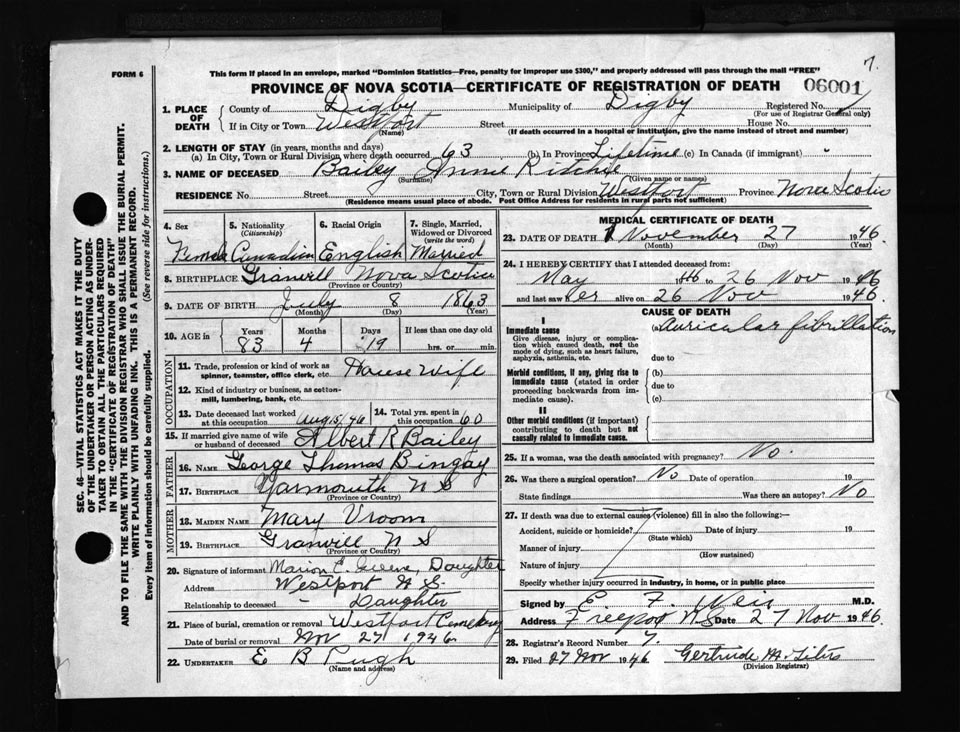 7.
FORM 6
This form if placed in an envelope, marked "Dominion Statistics—Free, penalty for improper use $300," and properly addressed will pass through the mail "FREE"
PROVINCE OF NOVA SCOTIA—CERTIFICATE OF REGISTRATION OF DEATH 06001
1. PLACE OF DEATH { County of Digby Municipality of Digby Registered No.
(For use of Registrar General only)
If in City or Town Westport Street House No.
(Name) (If death occurred in a hospital or institution, give the name instead of street and number)
2. LENGTH OF STAY (in years, months and days)
(a) In City, Town or Rural Division where death occurred 63 (b) In Province Lifetime (c) In Canada (if immigrant)
3. NAME OF DECEASED Bailey Annie Ritchie
(Surname) (Given name or names)
RESIDENCE No. Street City, Town or Rural Division Westport Province Nova Scotia
(Residence means usual place of abode. Post Office Address for residents in rural parts not sufficient)
4. Sex 5. Nationality (Citizenship) 6. Racial Origin 7. Single, Married, Widowed or Divorced (write the word)
Female Canadian English Married
8. BIRTHPLACE Granvill Nova Scotia
(Province or Country)
9. DATE OF BIRTH July 8 1863
(Month) (Day) (Year)
10. AGE in { Years Months Days If less than one day old
83 4 19 hrs. or min.
OCCUPATION
11. Trade, profession or kind of work as spinner, teamster, office clerk, etc. House Wife
12. Kind of industry or business, as cotton-mill, lumbering, bank, etc.
13. Date deceased last worked at this occupation Aug 15/46 14. Total yrs. spent in this occupation 60
15. If married give name of wife or husband of deceased Albert R Bailey
FATHER
16. NAME George Thomas Bingay
17. BIRTHPLACE Yarmouth N S
(Province or Country)
MOTHER
18. MAIDEN NAME Mary Vroom
19. BIRTHPLACE Granvill N S
(Province or Country)
20. Signature of informant Marion E. Daughter
Address Westport N. S.
Relationship to deceased - Daughter
21. Place of burial, cremation or removal Westport Cemetery
Date of burial or removal Nov 27 1946
22. UNDERTAKER E B Pugh
(Name and address)
MEDICAL CERTIFICATE OF DEATH
23. DATE OF DEATH November 27 1946.
(Month) (Day) (Year)
24. I HEREBY CERTIFY that I attended deceased from:
May to 26 Nov 1946
and last saw her alive on 26 Nov 1946.
CAUSE OF DEATH
I
Immediate cause (a) Auricular fibrillation
Give disease, injury or complication which caused death, not the mode of dying, such as heart failure, asphyxia, asthenia, etc. due to
Morbid conditions, if any, giving rise to immediate cause (stated in order proceeding backwards from immediate cause). (b)
due to
(c)
II
Other morbid conditions (if important) contributing to death but not causally related to immediate cause.
25. If a woman, was the death associated with pregnancy? No.
26. Was there a surgical operation? No Date of operation 19
State findings Was there an autopsy? No
27. If death was due to external causes (violence) fill in also the following:—
Accident, suicide or homicide? Date of injury 19
(State which)
Manner of injury
(How sustained)
Nature of injury
Specify whether injury occurred in industry, in home, or in public place
Signed by E F Weir M.D.
Address Freeport N.S. Date 27 Nov 1946.
28. Registrar's Record Number 7.
29. Filed 27 Nov 1946 Gertrude M.
(Division Registrar)
SEC. 46—VITAL STATISTICS ACT MAKES IT THE DUTY
OF THE UNDERTAKER OR PERSON ACTING AS UNDER-
TAKER TO OBTAIN ALL THE PARTICULARS REQUIRED
IN THE "CERTIFICATE OF REGISTRATION OF DEATH"
AND TO FILE THE SAME WITH THE DIVISION REGISTRAR WHO SHALL ISSUE THE BURIAL PERMIT.
WRITE PLAINLY WITH UNFADING INK. THIS IS A PERMANENT RECORD.
Every item of information should be carefully supplied. (See reverse side for instructions.)